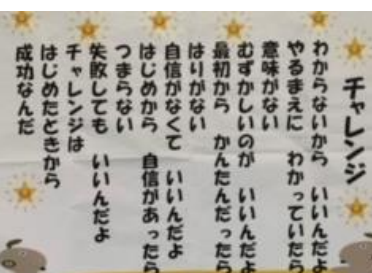 チャレンジ
わからないから いいんだよ
やるまえに わかっていたら
意味がない
むずかしいのが いいんだよ
最初から かんたんだったら
はりがない
自信がなくて いいんだよ
はじめから 自信があったら
つまらない
失敗しても いいんだよ
チャレンジは
はじめたときから
成功なんだ